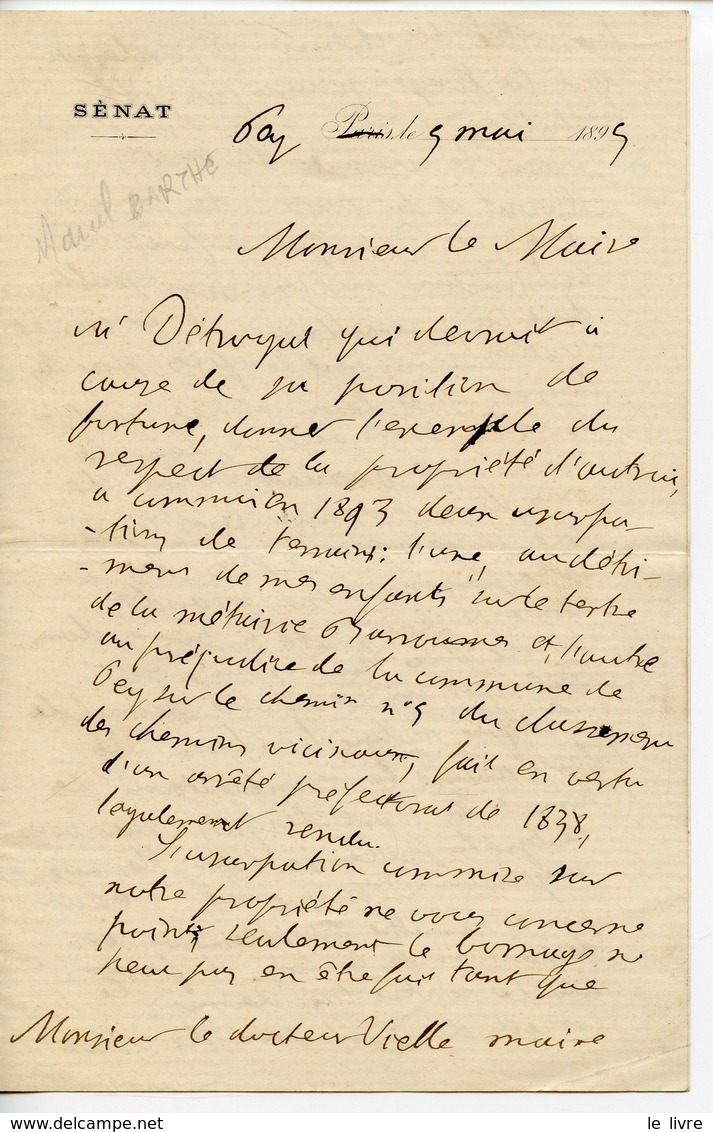 SÉNAT
Pey Paris, le 9 mai 1899
Marcel BARTHE
Monsieur le Maire
M Détroyat qui devrait à
cause de sa position de
fortune, donner l'exemple du
respect de la propriété d'autrui,
a commis en 1893 deux usurpa-
-tions de terrains: l'une, au détri-
-ment de mes enfants sur le tertre
de la métairie et, l'autre
au préjudice de la commune de
Pey sur le chemin n° 9 du classement
des chemins vicinaux, fait en vertu
d'un arrêté préfectoral de 1838,
légalement rendu.
L'usurpation commise sur
notre propriété ne vous concerne
point; seulement le bornage ne
peut pas en être fait tant que
Monsieur le docteur Vielle maire
le livre